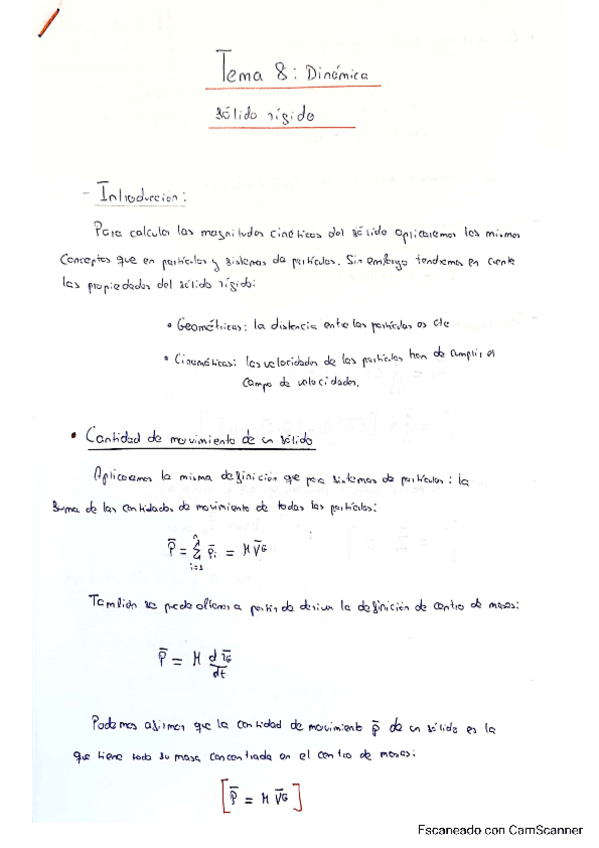 Tema 8: Dinámica
sólido rígido
- Introduccion:
Para calcular las magnitudes cinéticas del sólido aplicaremos los mismos
conceptos que en partículas y sistemas de partículas. Sin embargo tendremos en cuenta
las propiedades del sólido rígido:
• Geométricas: la distancia entre las partículas es cte
• Cinemáticas: las velocidades de las partículas han de cumplir el
campo de velocidades.
• Cantidad de movimiento de un sólido
Aplicaremos la misma definición que para sistemas de partículas: la
suma de las cantidades de movimiento de todas las partículas:
P̄ = Σ p̄i = M V̄G
i=1
También se puede obtener a partir de derivar la definición de centro de masas:
P̄ = M d r̄G / dt
Podemos afirmar que la cantidad de movimiento p̄ de un sólido es la
que tiene toda su masa concentrada en el centro de masas:
[P̄ = M V̄G]
Escaneado con CamScanner